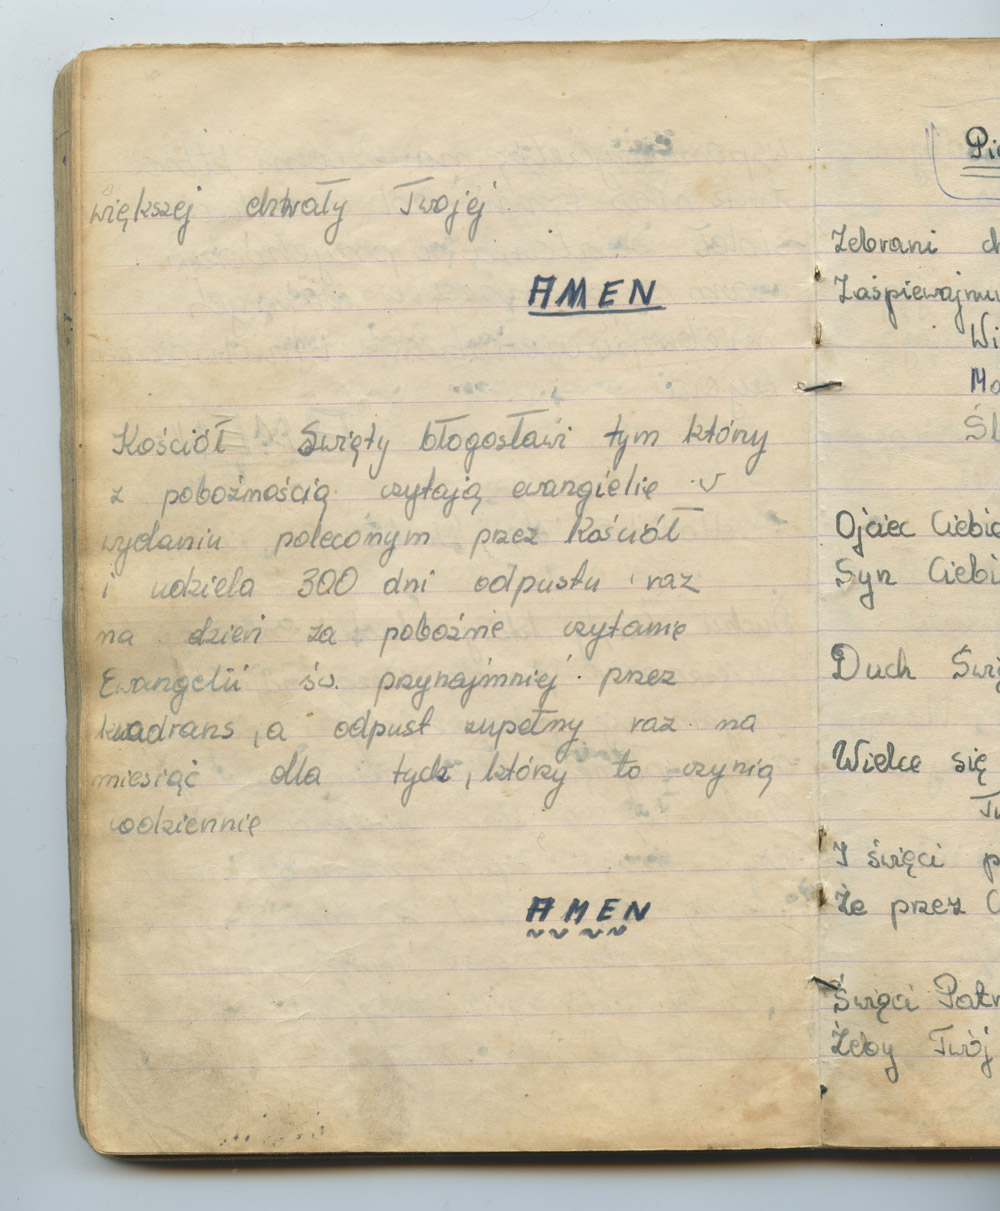 większej chwały Twojej
AMEN
Kościół Święty błogosławi tym którzy
z pobożnością czytają ewangielię v
wydaniu poleconym przez Kościół
i udziela 300 dni odpustu raz
na dzień za pobożne czytanie
Ewangelii św. przynajmniej przez
kwadrans, a odpust zupełny raz na
miesiąc dla tych, którzy to czynią
codziennie
AMEN
Zebrani
Zaśpiewajmy
Ojciec
Syn
Duch
Wielce się
I święci
Że przez
Święci
Żeby Twój